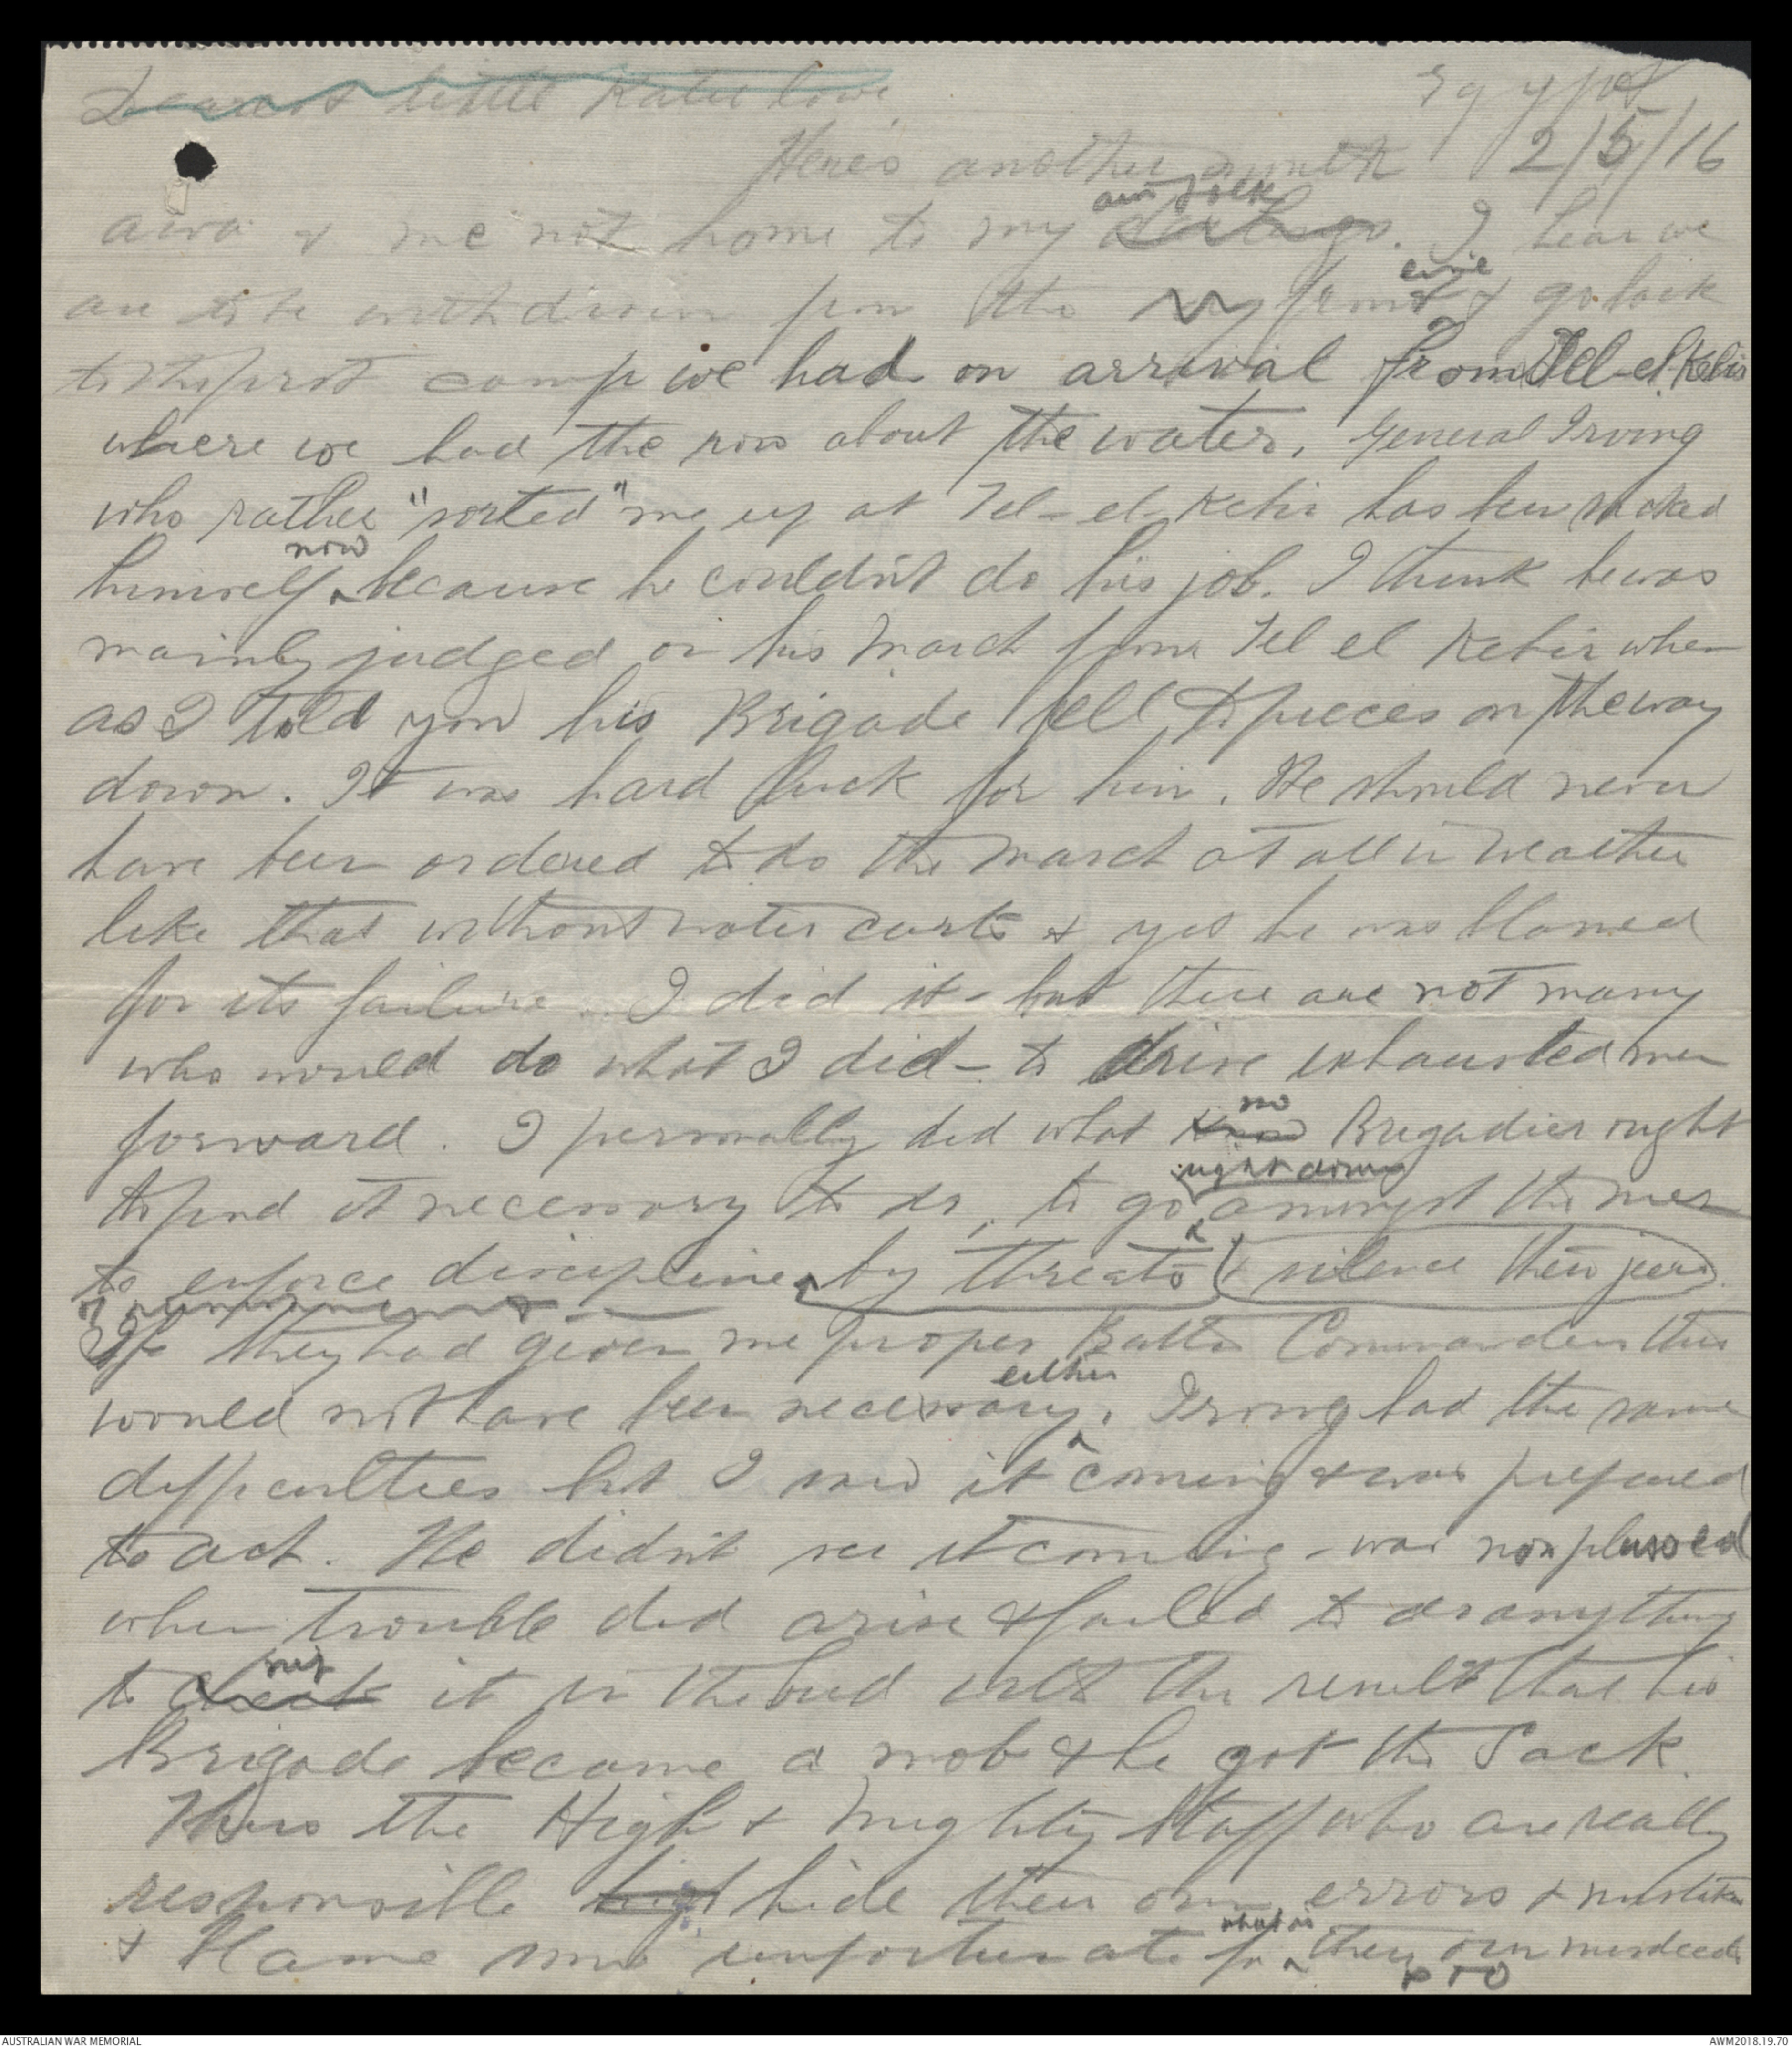 Dearest little Katie love. Egypt
Here's another month 2/5/16
awa & me not home to my own folk darlings. I hear we
are to be withdrawn from the front line & go back
to the first camp we had on arrival from Tel-el-Kebir
where we had the row about the water. General Irving
who rather "sorted" me up at Tel-el-Kebir has been sacked
himself now because he couldn't do his job. I think he was
mainly judged on his March from Tel el Kebir when
as I told you his Brigade fell to pieces on the way
down. It was hard luck for him. He should never
have been ordered to do the march at all in weather
like that without water carts & yet he was blamed
for its failure. I did it - but there are not many
who would do what I did - to drive exhausted men
forward. I personally did what no Brigadier ought
to find it necessary to do, to go right down amongst the men
to enforce discipline by threats & silence their jeers.
of punishment
If they had given me proper Battn Commanders this
would not have been necessary either. Irving had the same
difficulties but I saw it coming & was prepared
to act. He didn't see it coming - was nonplussed
when trouble did arise & failed to do anything
to check nip it in the bud with the result that his
Brigade became a mob & he got the Sack.
Thus the High & Mighty Staff who are really
responsible hide their own errors & mistakes
& blame some unfortunate for what is their own misdeeds
PTO
AUSTRALIAN WAR MEMORIAL AWM2018.19.70